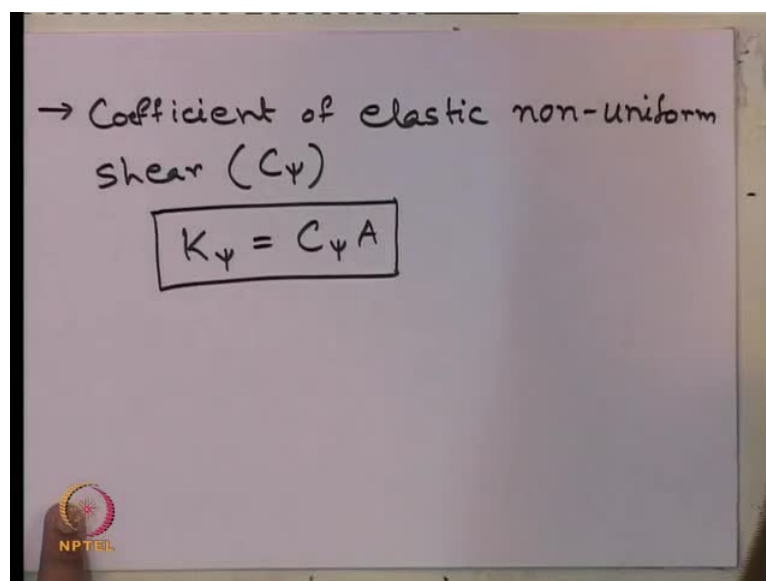 → Coefficient of elastic non-uniform
shear (Cψ)
Kψ = Cψ A
NPTEL